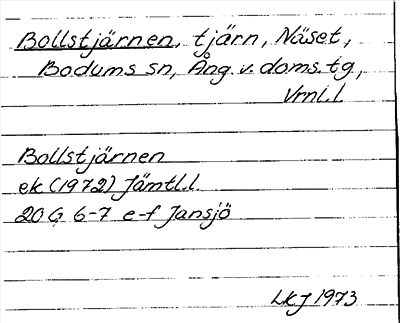 Bollstjärnen, tjärn, Näset,
Bodums sn, Ång. v. doms. tg,
Vrnl. l
Bollstjärnen
ek (1972) Jämtl. l.
20 G 6-7 e-f Jansjö
LKJ 1973